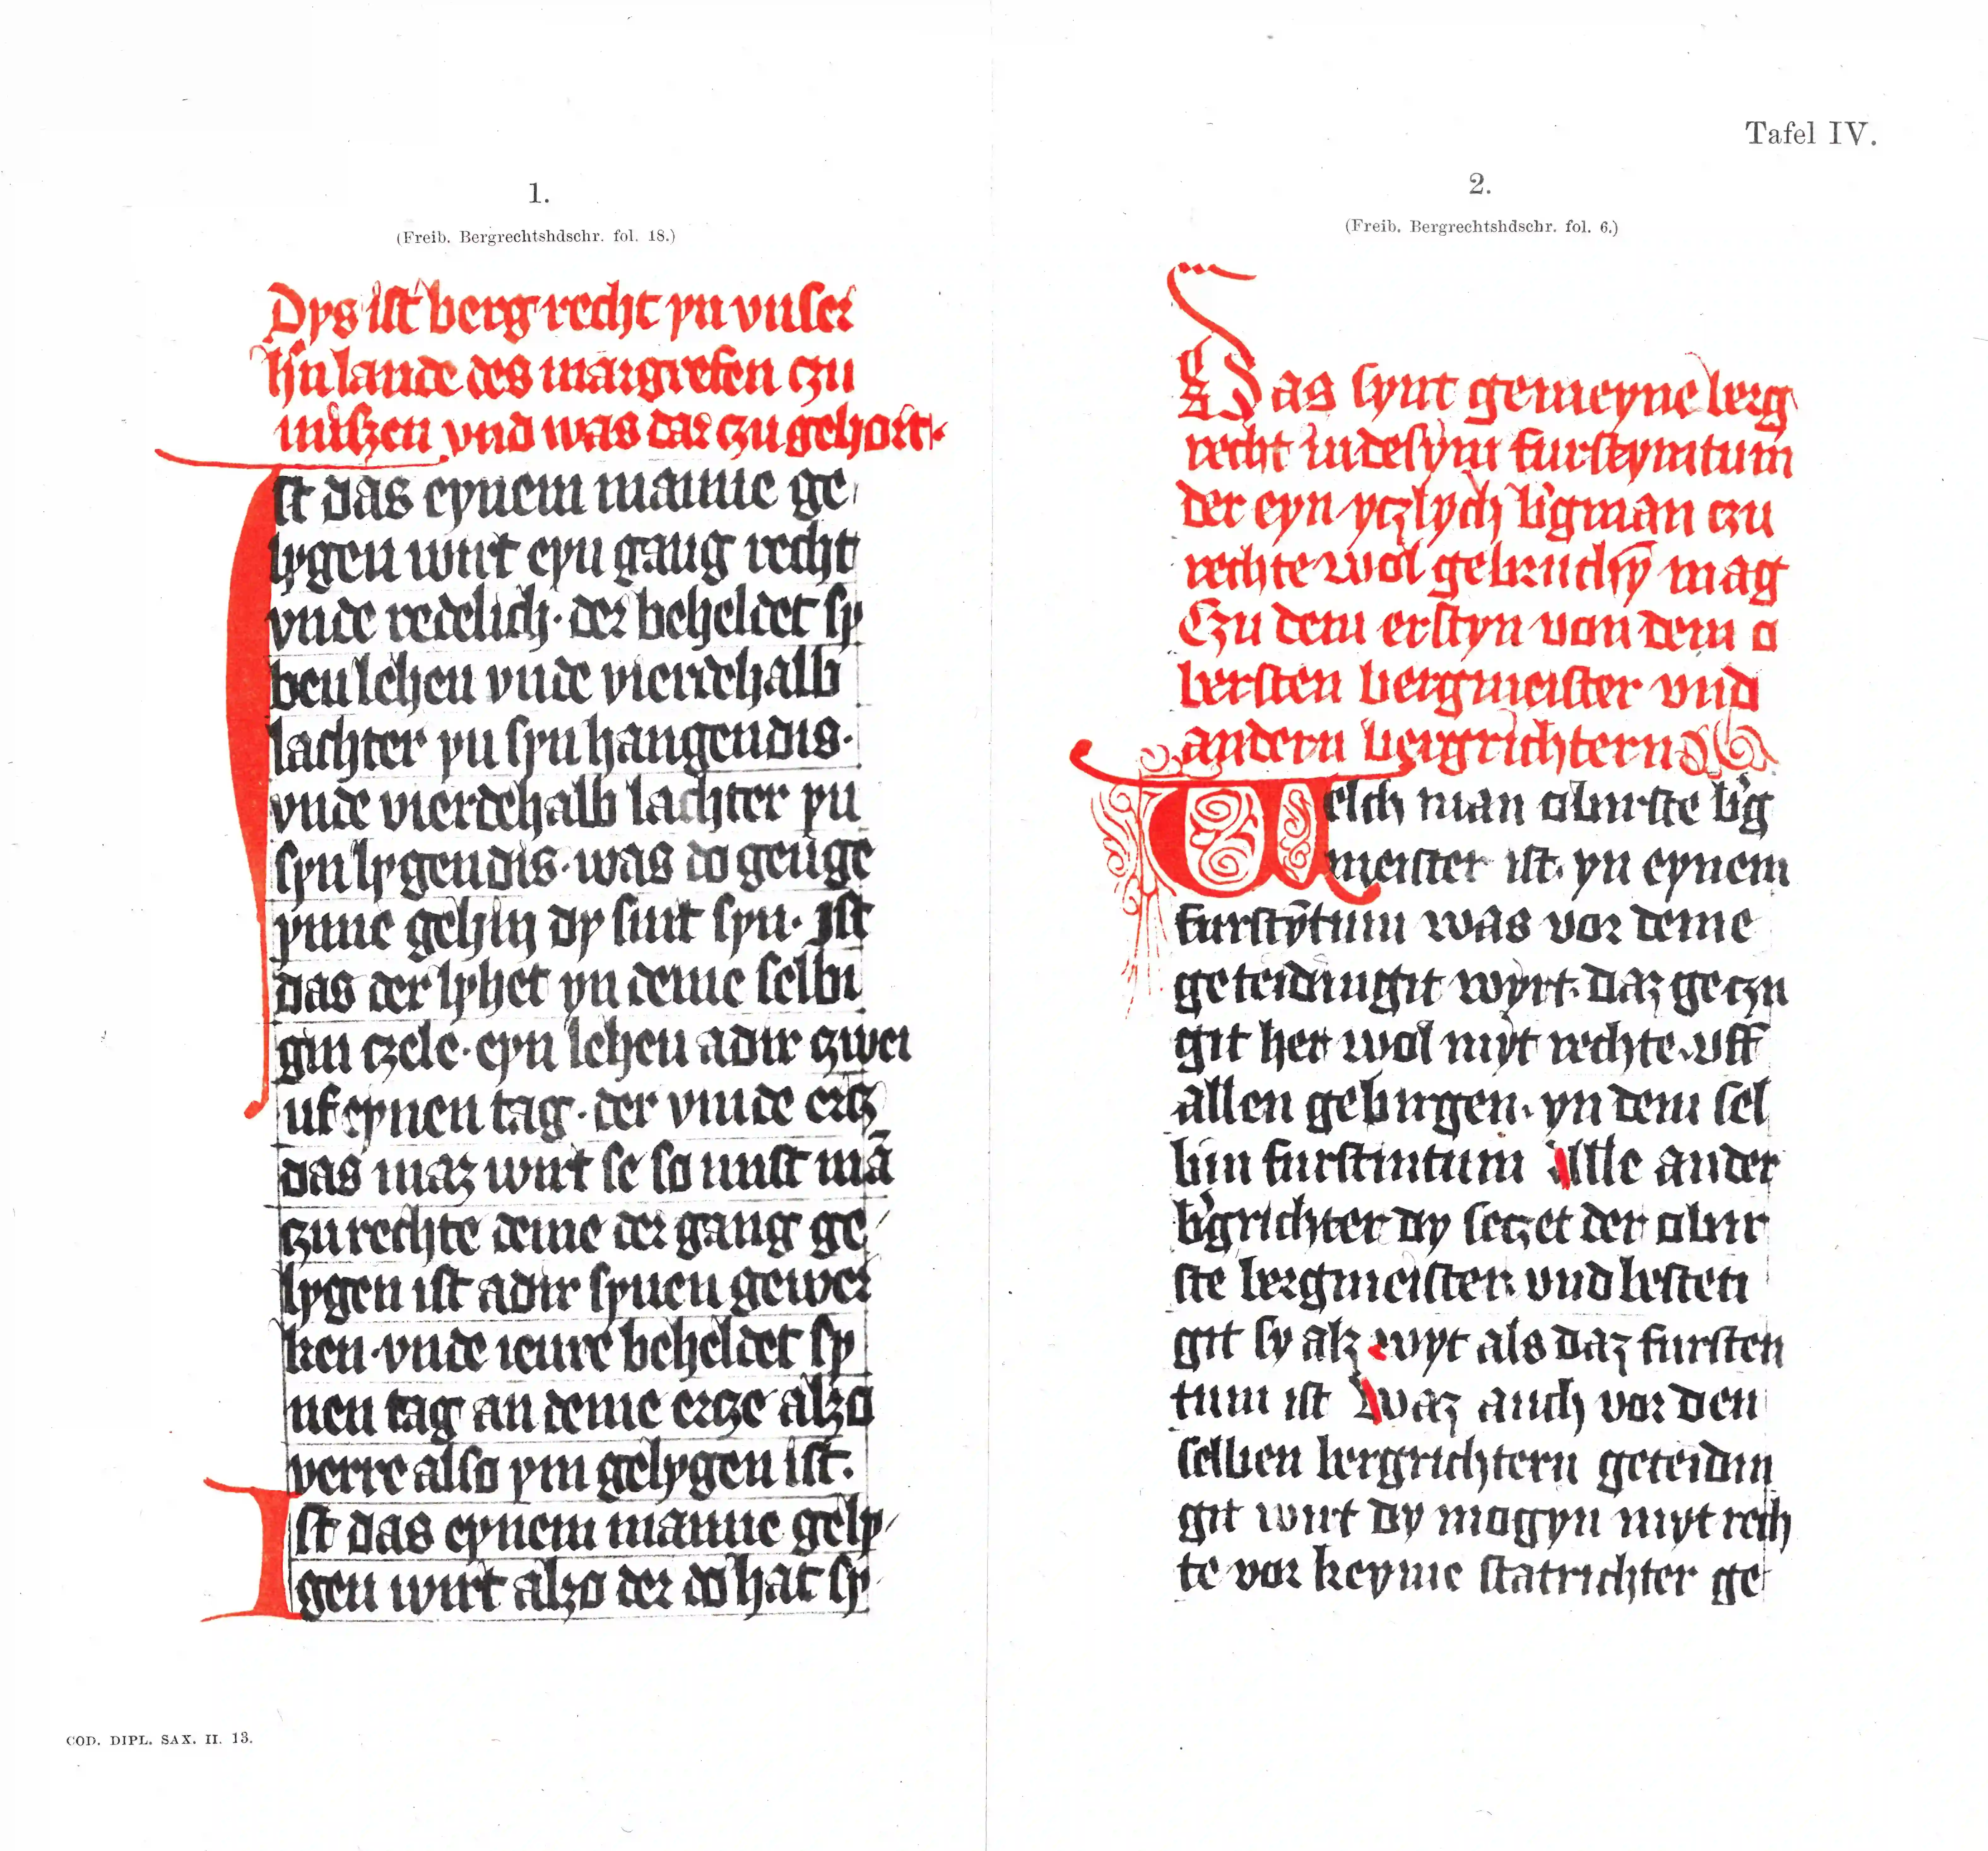 Tafel IV.
1.
(Freib. Bergrechtshdschr. fol. 18.)
Dys ist berg recht yn vnser
h'n lande des margrefen czu
mißzen vnd was dar czu gehort.
Ist das eynem manne ge,
lygen wirt eyn gang recht
vnde redelich. der beheldet sy
ben lehen vnde vierdehalb
lachter yn syn hangendis.
vnde vierdehalb lachter yn
syn lygendis. was do genge
ynne gehin dy sint syn. Ist
das der lyhet yn deme selbi
gin czele. eyn lehen adir zwei
uf eynen tag. der vinde ertz
das maz wirt se so mist mā
zu rechte deme der gang ge/
lygen ist adir synen gewer
ken. vnde iene beheldet sy
nen tag an deme ercze alzo
verre also ym gelygen ist.
Ist das eynem manne gely/
gen wirt alzo der do hat sy
2.
(Freib. Bergrechtshdschr. fol. 6.)
Das synt gemeyne berg
recht in desym furstymtum
der eyn yczlych b'gman czu
rechte wol gebruchȳ mag
Czu dem erstyn von dem o
bersten bergmeister vnd
andern bergrichtern
Welch man oburste b'g
meister ist. yn eynem
furstȳtum was vor deme
geteidingit wyrt. daz geczu
git her wol myt rechte. uff
allen gebirgen. yn dem sel
bin furstintum Alle ander
b'grichter dy seczet der obir
ste bergmeister. vnd besteti
git sy alz wyt als daz fursten
tum ist Waz auch vor den
selben bergrichtern geteidin
git wirt dy mogyn myt rech
te vor keyme statrichter ge
COD. DIPL. SAX. II. 13.